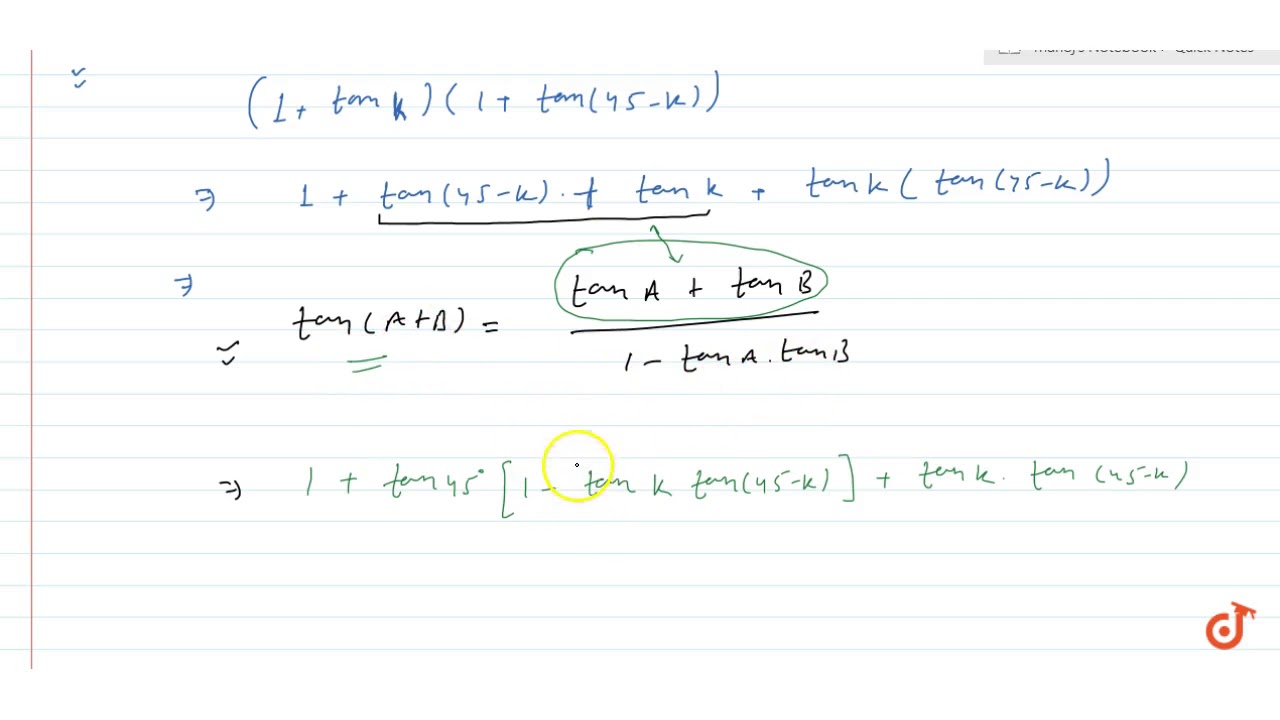 Quick Notes
(1 + tan k)(1 + tan(45-k))
⇒ 1 + tan(45-k) · + tan k + tan k ( tan(45-k))
⇒
tan A + tan B
tan(A+B) =
1 - tan A . tan B
⇒ 1 + tan 45° [1 - tan k tan(45-k)] + tan k . tan (45-k)